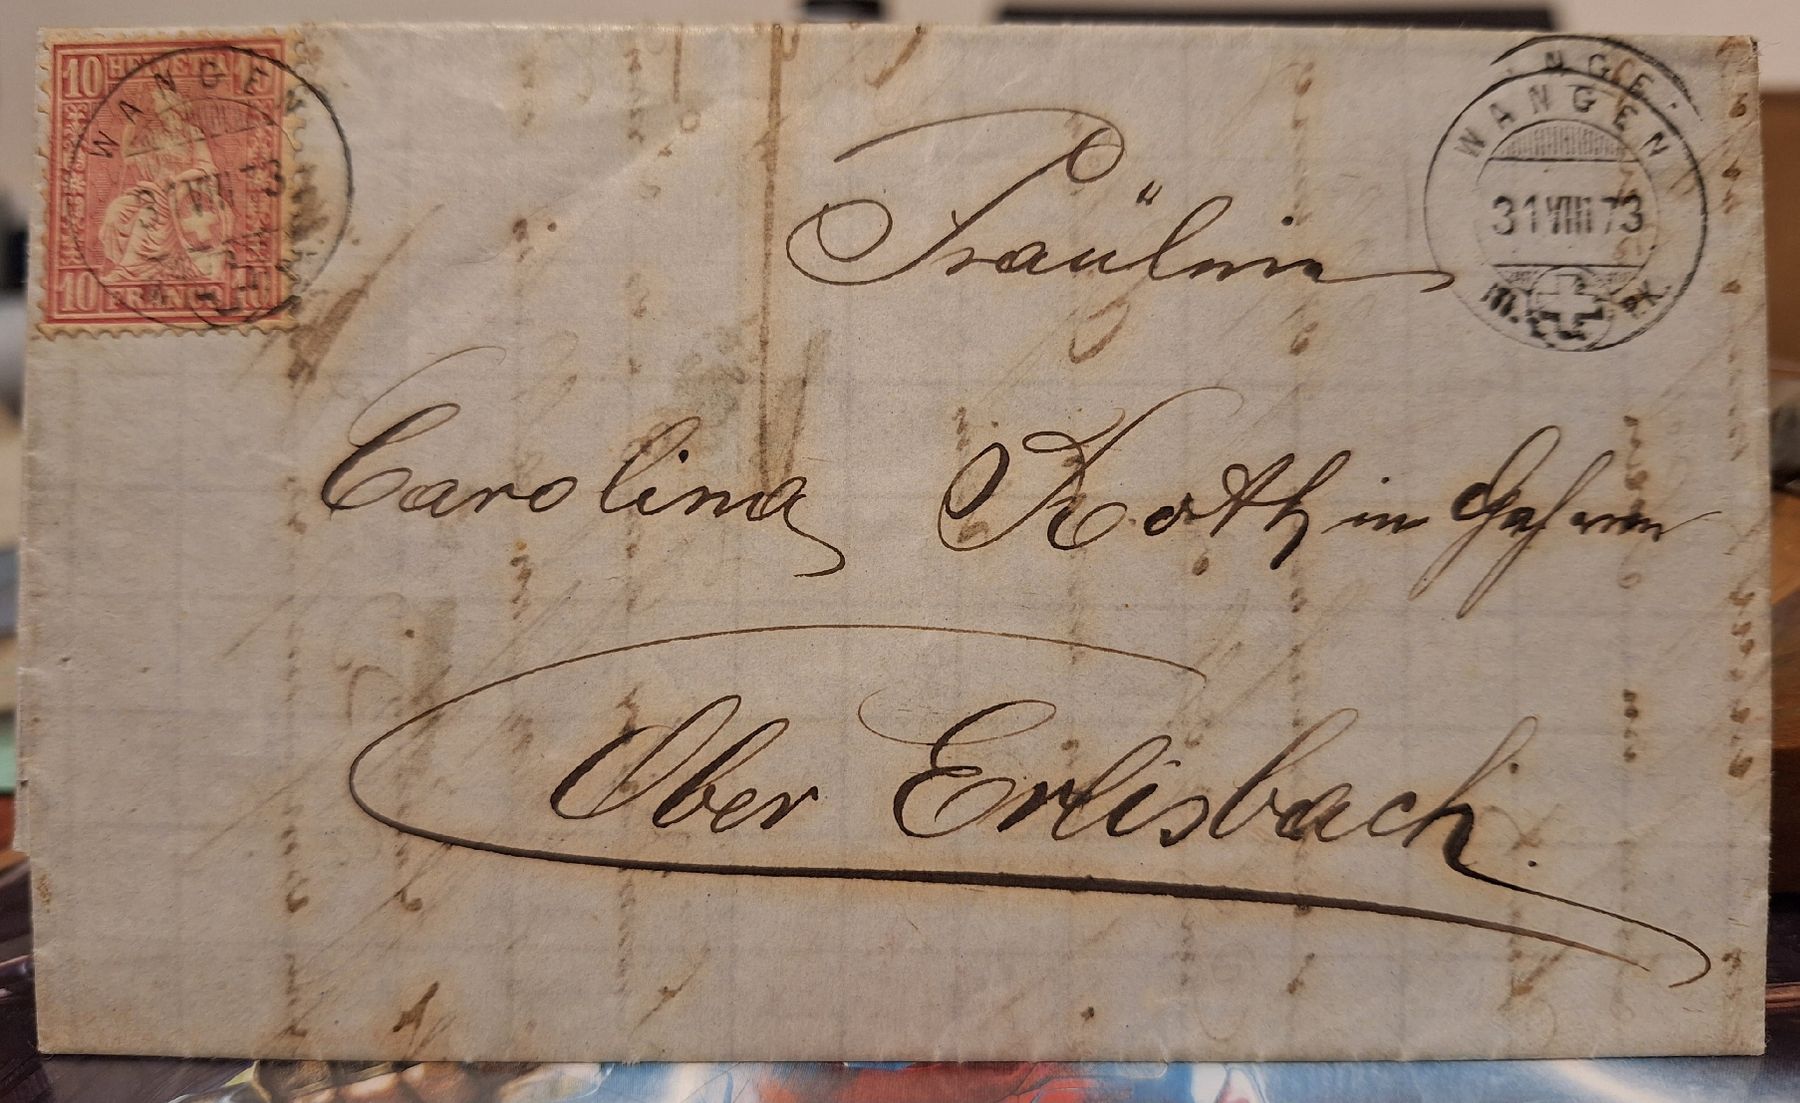 10 HELVETIA 10
10 FRANCO 10
WANGEN
WANGEN
31 VIII 73
Fräulein
Carolina Roth in
Ober Erlisbach.